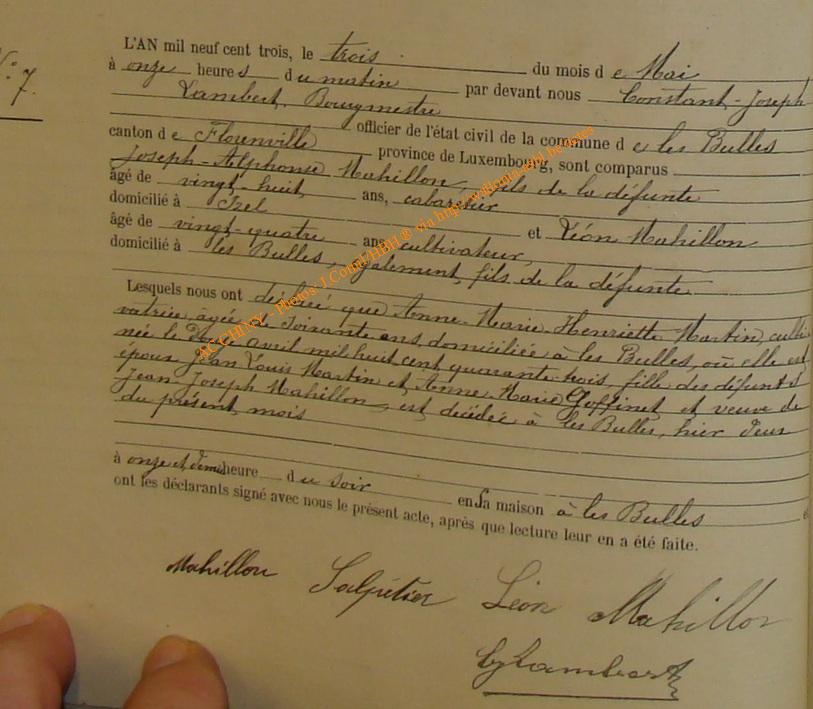 N° 7.
L'AN mil neuf cent trois, le trois du mois d e Mai
à onze heure s d u matin par devant nous Constant-Joseph
Lambert, Bourgmestre
officier de l'état civil de la commune d e les Bulles
canton d e Florenville province de Luxembourg, sont comparus
Joseph-Alphonse Mahillon, fils de la défunte
âgé de vingt-huit ans, cabaretier
domicilié à Izel et Léon Mahillon
âgé de vingt-quatre ans cultivateur,
domicilié à les Bulles, également fils de la défunte.
Lesquels nous ont déclaré que Anne-Marie Henriette Martin, culti
vatrice, âgée de soixante ans, domiciliée à les Bulles, où elle est
née le avril mil huit cent quarante-trois, fille des défunts
époux Jean Louis Martin et Anne Marie Goffinet et veuve de
Jean-Joseph Mahillon, est décédée à les Bulles, hier deux
du présent mois
à onze et demie heure d u soir en sa maison à les Bulles e
ont les déclarants signé avec nous le présent acte, après que lecture leur en a été faite.
Mahillon Salpétier Léon Mahillon
CJLambert
AC CHINY - Photos: J.Comel/HBH ® via